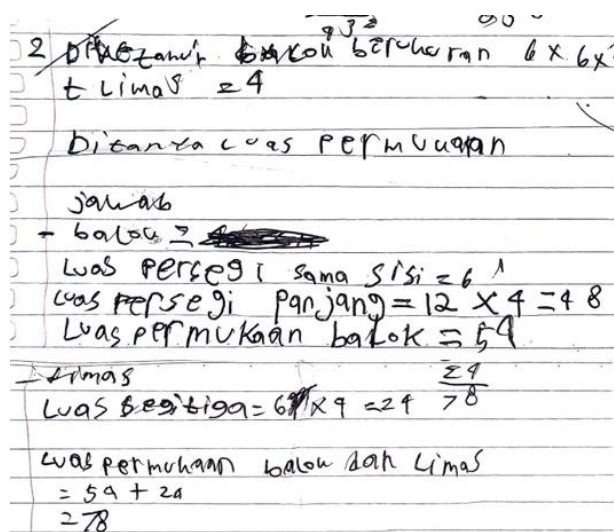 2 Diketahui balok berukuran 6 x 6 x
t Limas = 4
Ditanya Luas Permukaan
jawab
- balok =
Luas persegi sama sisi = 6
Luas persegi panjang = 12 x 4 = 48
Luas permukaan balok = 54
- Limas
Luas segitiga = 6 x 4 = 24
24
78
Luas permukaan balok dan Limas
= 54 + 24
= 78